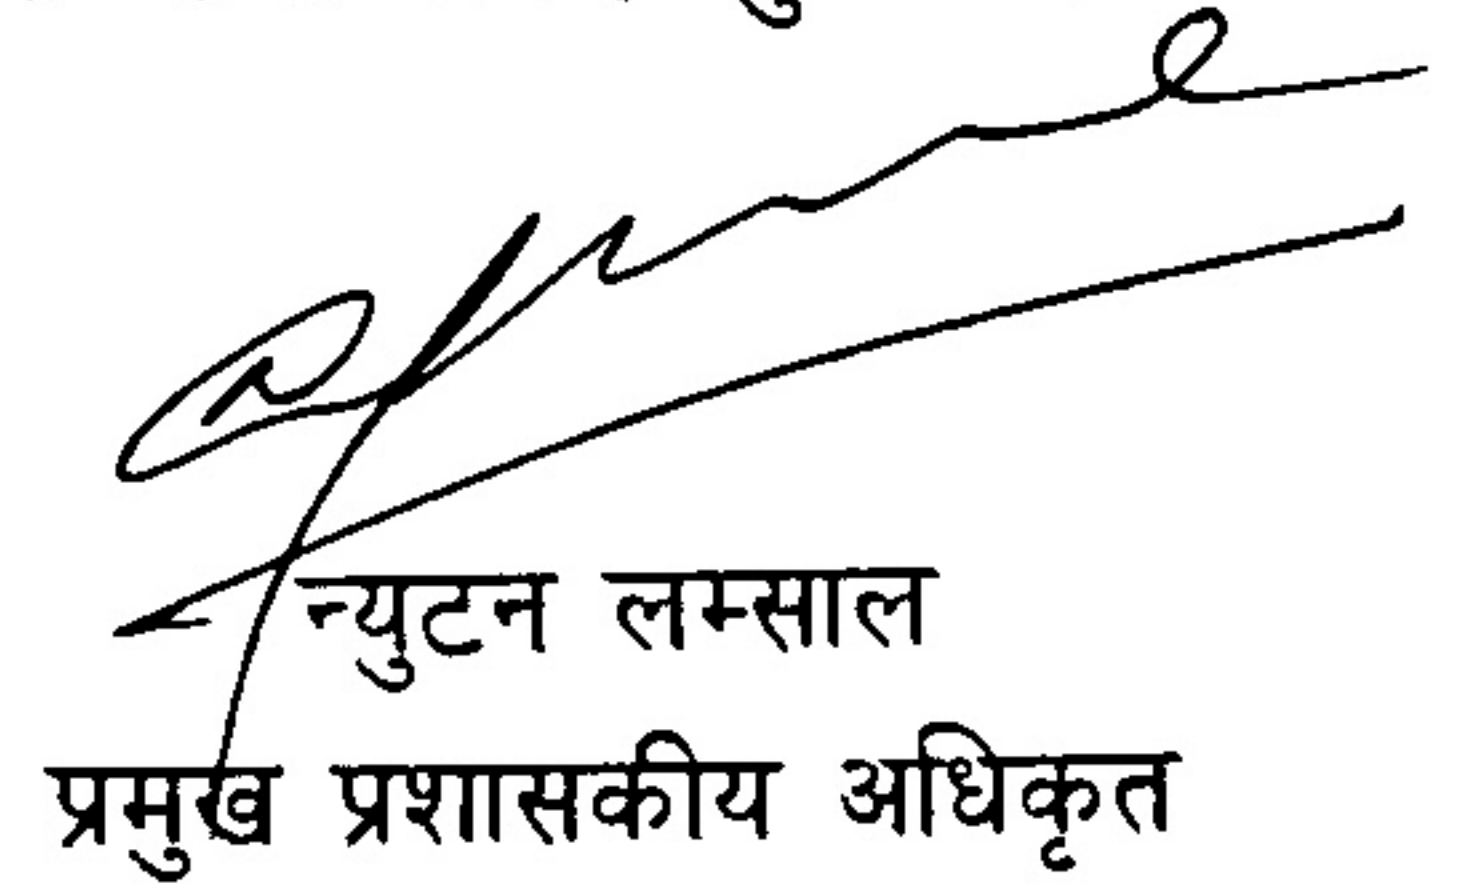 न्युटन लम्साल
प्रमुख प्रशासकीय अधिकृत